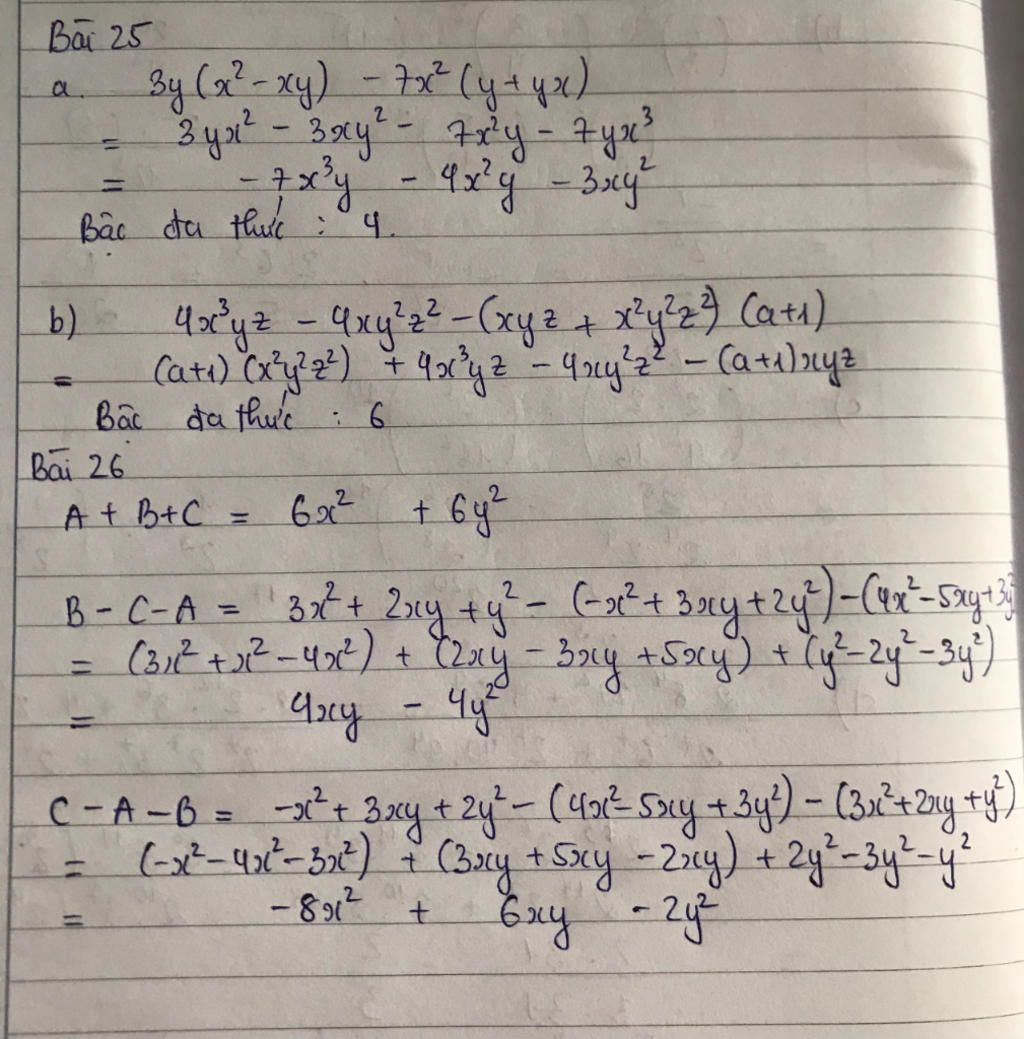 Bài 25
a. 3y(x² - xy) - 7x²(y + yx)
= 3yx² - 3xy² - 7x²y - 7yx³
= - 7x³y - 4x²y - 3xy²
Bậc đa thức : 4.
b) 4x³yz - 4xy²z² - (xyz + x²y²z²) (a+1)
= (a+1) (x²y²z²) + 4x³yz - 4xy²z² - (a+1)xyz
Bậc đa thức : 6
Bài 26
A + B+C = 6x² + 6y²
B - C - A = 3x² + 2xy + y² - (-x² + 3xy + 2y²) - (4x² - 5xy + 3y²
= (3x² + x² - 4x²) + (2xy - 3xy + 5xy) + (y² - 2y² - 3y²)
= 4xy - 4y²
C - A - B = -x² + 3xy + 2y² - (4x² - 5xy + 3y²) - (3x² + 2xy + y²)
= (-x² - 4x² - 3x²) + (3xy + 5xy - 2xy) + 2y² - 3y² - y²
= -8x² + 6xy - 2y²